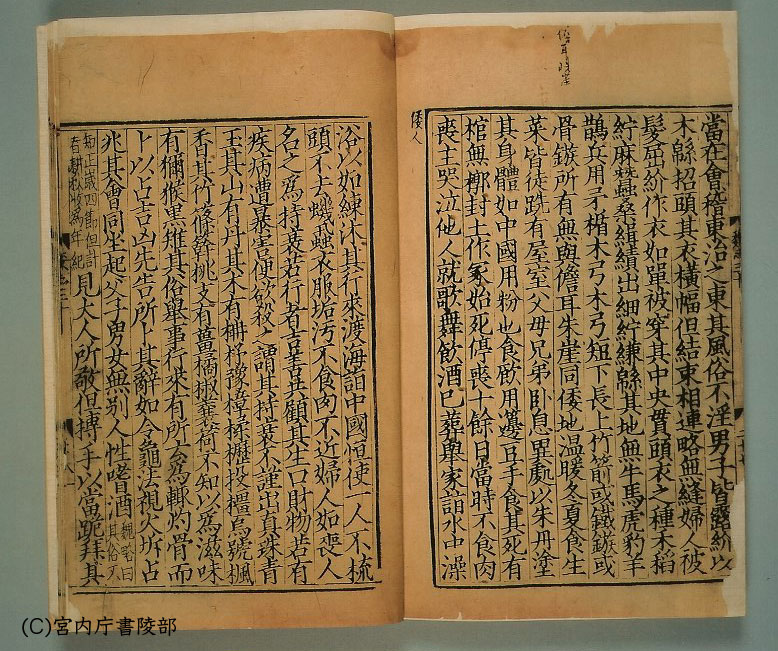 當在會稽東治之東其風俗不淫男子皆露紒以
木緜招頭其衣橫幅但結束相連略無縫婦人被
髮屈紒作衣如單被穿其中央貫頭衣之種禾稻
紵麻蠶桑緝績出細紵縑緜其地無牛馬虎豹羊
鵲兵用矛楯木弓木弓短下長上竹箭或鐵鏃或
骨鏃所有無與儋耳朱崖同倭地溫暖冬夏食生
菜皆徒跣有屋室父母兄弟卧息異處以朱丹塗
其身體如中國用粉也食飲用籩豆手食其死有
棺無槨封土作冢始死停喪十餘日當時不食肉
喪主哭泣他人就歌舞飲酒已葬舉家詣水中澡
倭人
浴以如練沐其行來渡海詣中國恒使一人不梳
頭不去蟣蝨衣服垢汚不食肉不近婦人如喪人
名之爲持衰若行者吉善共顧其生口財物若有
疾病遭暴害便欲殺之謂其持衰不謹出真珠青
玉其山有丹其木有柟杼豫樟楺櫪投橿烏號楓
香其竹篠簳桃支有薑橘椒蘘荷不知以爲滋味
有獮猴黑雉其俗舉事行來有所云爲輒灼骨而
卜以占吉凶先告所卜其辭如令龜法視火坼占
兆其會同坐起父子男女無別人性嗜酒魏略曰其俗不
知正歲四節但計春耕秋收爲年紀見大人所敬但搏手以當跪拜其
(C)宮内庁書陵部